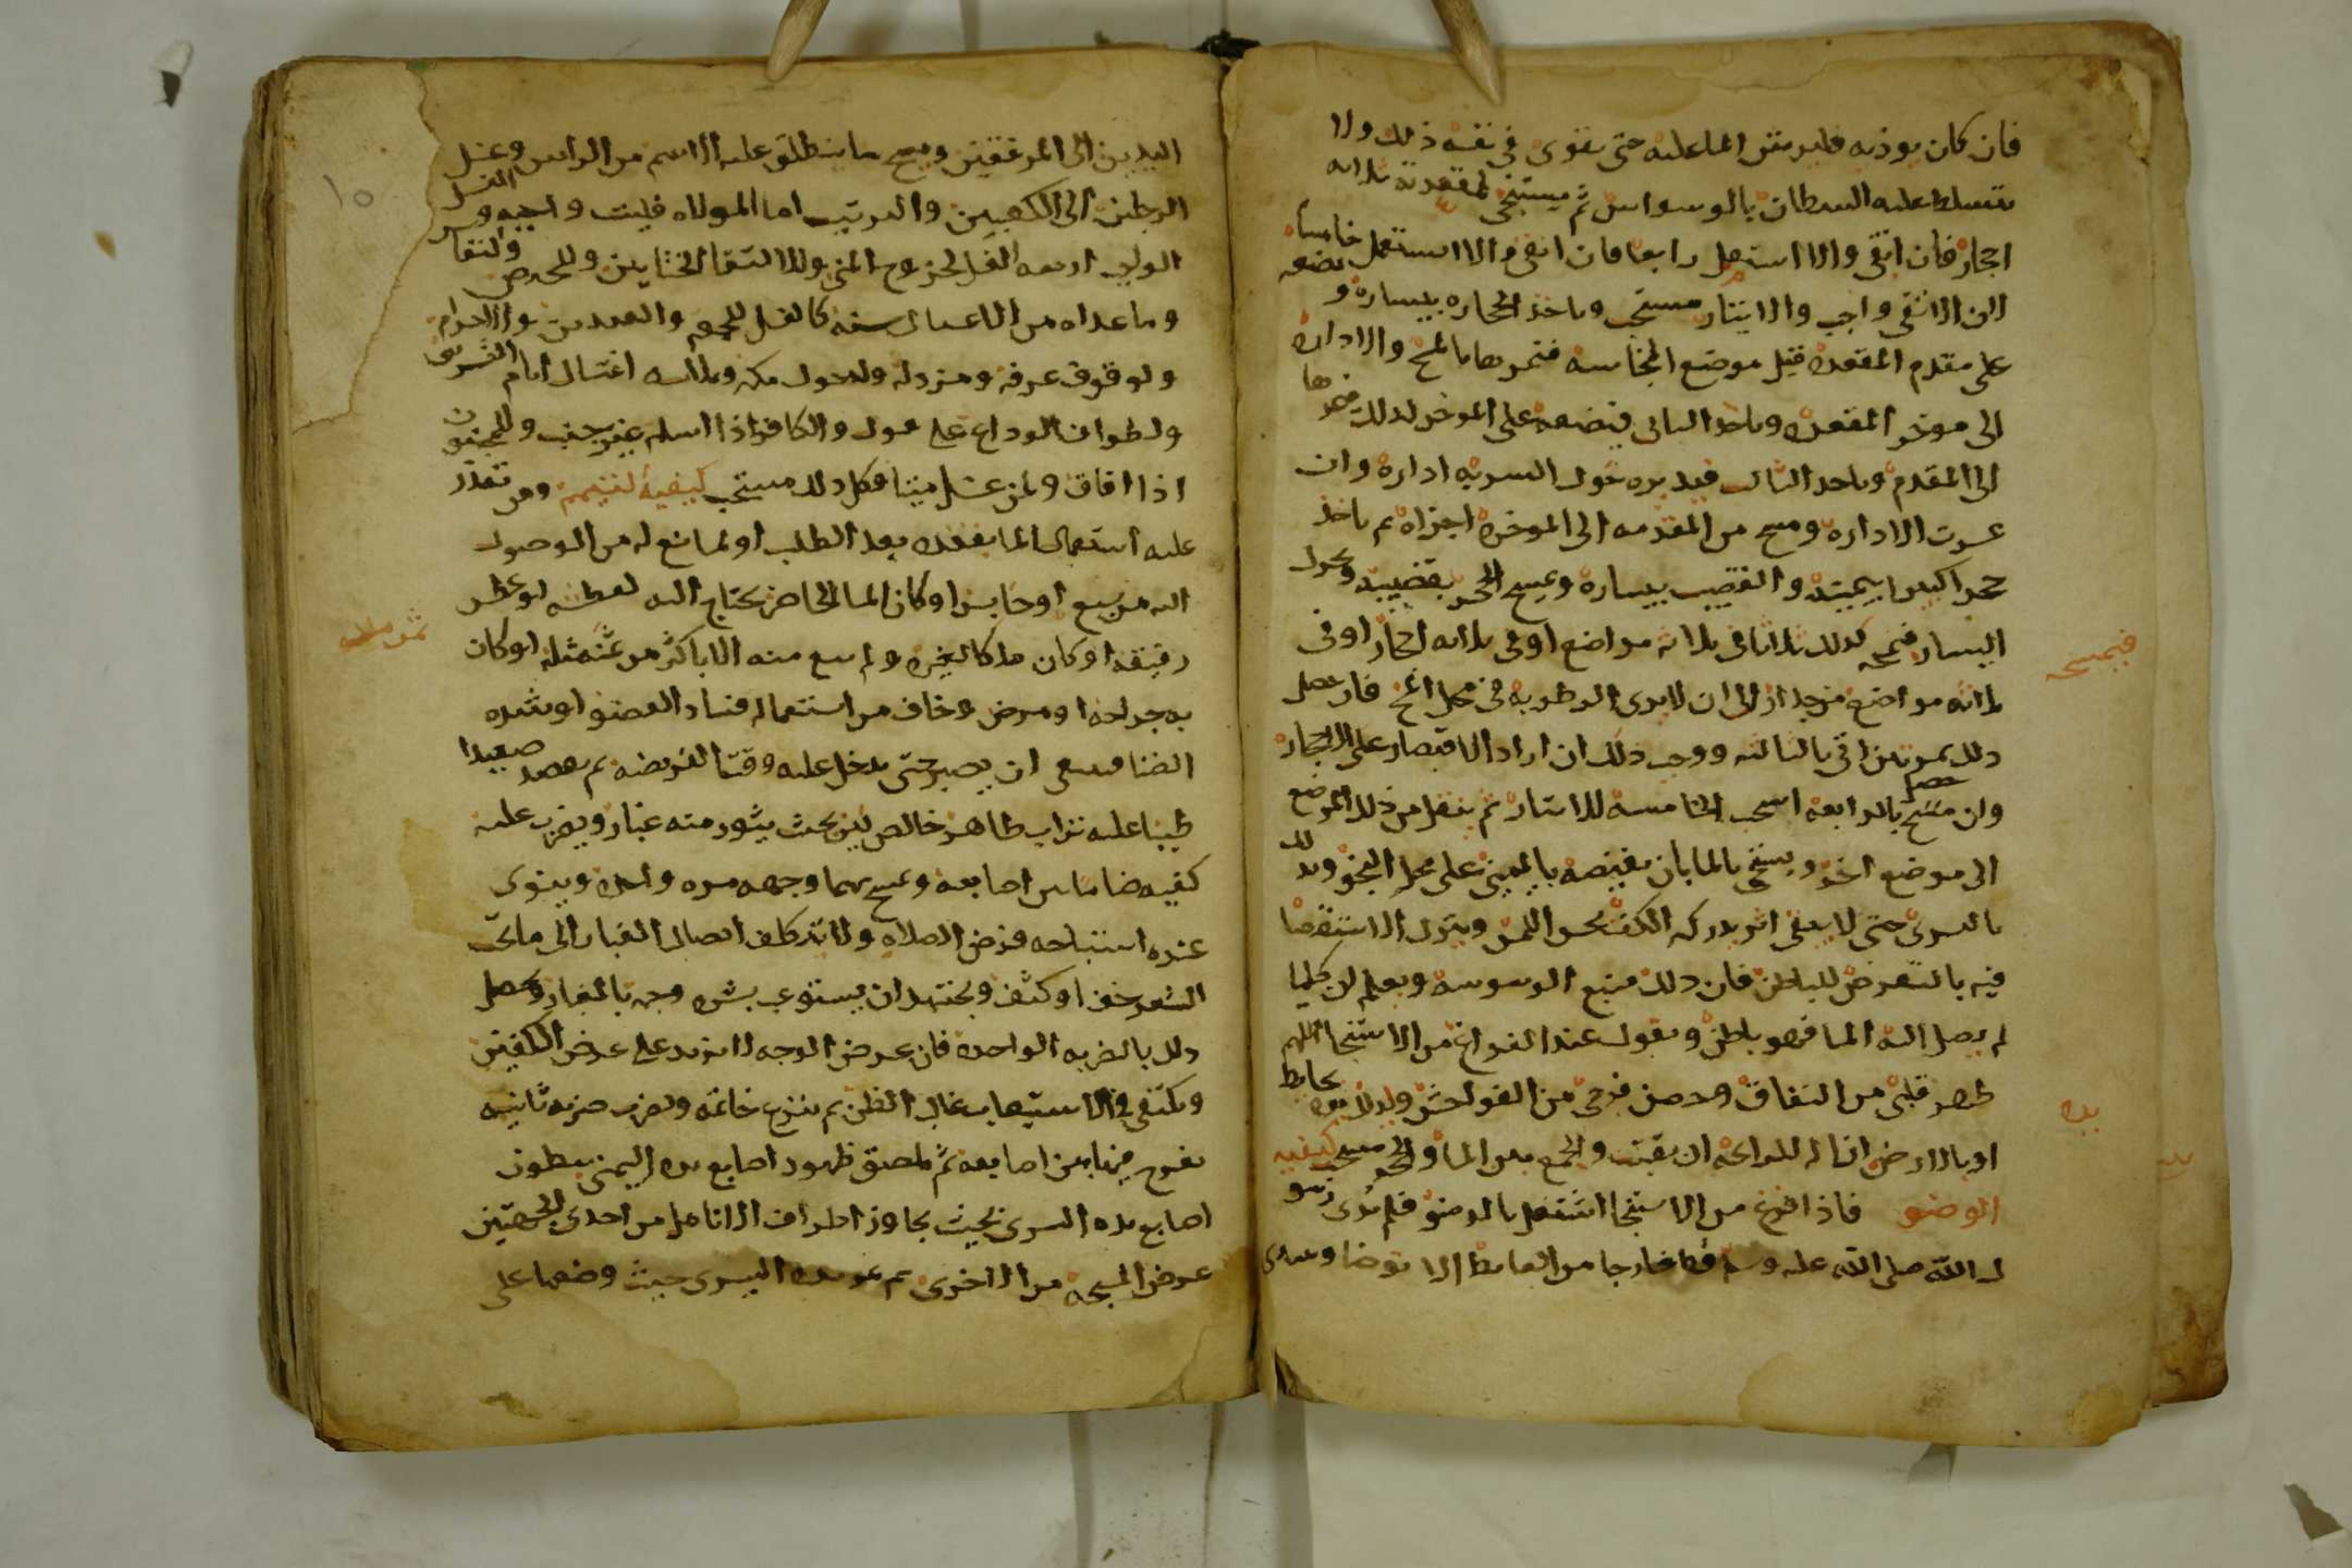 فان كان يوذيه فليرش الماعليه حتى يقوى في نفسه ذلك ولا
يتسلط عليه الشيطان بالوسواس ثم يستنجى لمقعدته بثلاثه
احجار فان انقى والا استعمل رابعا فان انقى والا استعمل خامسا
لان الانقى واجب والايتار مستحب وياخذ الحجاره بيساره و يضعه
على مقدم المقعده قبل موضع النجاسه فيمرها بالمسح والاداره
الى موخر المقعده وياخذ الثانى فيضعه على الموخر كذلك ويمرها
الى المقدم وياخذ الثالث فيديره حول المسربه ادارة وان
عسرت الاداره ومسح من المقدمه الى الموخره اجزاه ثم ياخذ
حجرا كبيرا بيمينه والقضيب بيساره ويمسح الحجر بقضيبه ويحرك
اليسار فيمسحه كذلك ثلاثا في ثلاثه مواضع او في ثلاثه احجار او في
ثلاثه مواضع من جدار الى ان لا يرى الرطوبه في محل المسح فان حصل
ذلك بمرتين اتى بالثالثه ووجب ذلك ان اراد الاقتصار على الاحجار
وان حصل بالرابعه استحب الخامسه للايتار ثم ينتقل من ذلك الموضع
الى موضع اخر ويستنجى بالما بان يفيضه باليمين على محل النجو ويدلك
باليسرى حتى لا يبقى اثر يدركه الكف بحس اللمس ويترك الاستقصا
فيه بالتعرض للباطن فان ذلك منبع الوسوسه ويعلم ان كلما
لم يصل اليه الما فهو باطن ويقول عند الفراغ من الاستنجا اللهم
طهر قلبى من النفاق وحصن فرجى من الفواحش ويدلك يده بحايط
او بالارض ازاله للرايحه ان بقيت والجمع بين الما والحجر مستحب كيفيه
الوضو فاذا فرغ من الاستنجا اشتغل بالوضو فلم يرى رسو
ل الله صلى الله عليه وسلم قط خارجا من الغايط الا توضا ويبتدى
فيمسحه
يده
١٠
اليدين الى المرفقين ومسح ما ينطلق عليه الاسم من الراس وغسل
الرجلين الى الكعبين والترتيب اما الموالاه فليست واجبه والغسل
الواجب اربعه الغسل لخروج المنى ولالتقا الختانين وللحيض والنفاس
وما عداه من الاغسال سنه كالغسل للجمعه والعيدين والاحرام
ولوقوف عرفه ومزدلفه ولدخول مكه وثلاثه اغتسال ايام التشريق
ولطواف الوداع على قول والكافر اذا اسلم غير جنب وللمجنون
اذا افاق ولمن غسل ميتا فكل ذلك مستحب كيفية التيمم ومن تعذر
عليه استعمال الما بفقده بعد الطلب او لمانع له من الوصول
اليه من سبع او حابس او كان الما الحاضر يحتاج اليه لعطشه او عطش
رفيقه او كان ملكا لغيره ولم يبع منه الا باكثر من ثمن مثله او كان
به جراحه او مرض وخاف من استعماله فساد العضو او شده
الضنا فينبغى ان يصبر حتى يدخل عليه وقت الفريضه ثم يقصد صعيدا
طيبا عليه تراب طاهر خالص لين بحيث يثور منه غبار ويضرب عليه
كفيه ضاما بين اصابعه ويمسح بهما وجهه مره واحده وينوى
عنده استباحه فرض الصلاه ولا يتكلف ايصال الغبار الى ما تحت
الشعر خف او كثف ويجتهد ان يستوعب بشره وجهه بالغبار ويحصل
ذلك بالضربه الواحده فان عرض الوجه لا يزيد على عرض الكفين
ويكتفى في الاستيعاب غالب الظن ثم ينزع خاتمه ويضرب ضربه ثانيه
يفرج فيها بين اصابعه ثم يلصق ظهور اصابع يده اليمنى ببطون
اصابع يده اليسرى بحيث لا يجاوز اطراف الانامل من احدى الجهتين
عرض المسبحه من الاخرى ثم يمر يده اليسرى حيث وضعها على
ثمن مثله